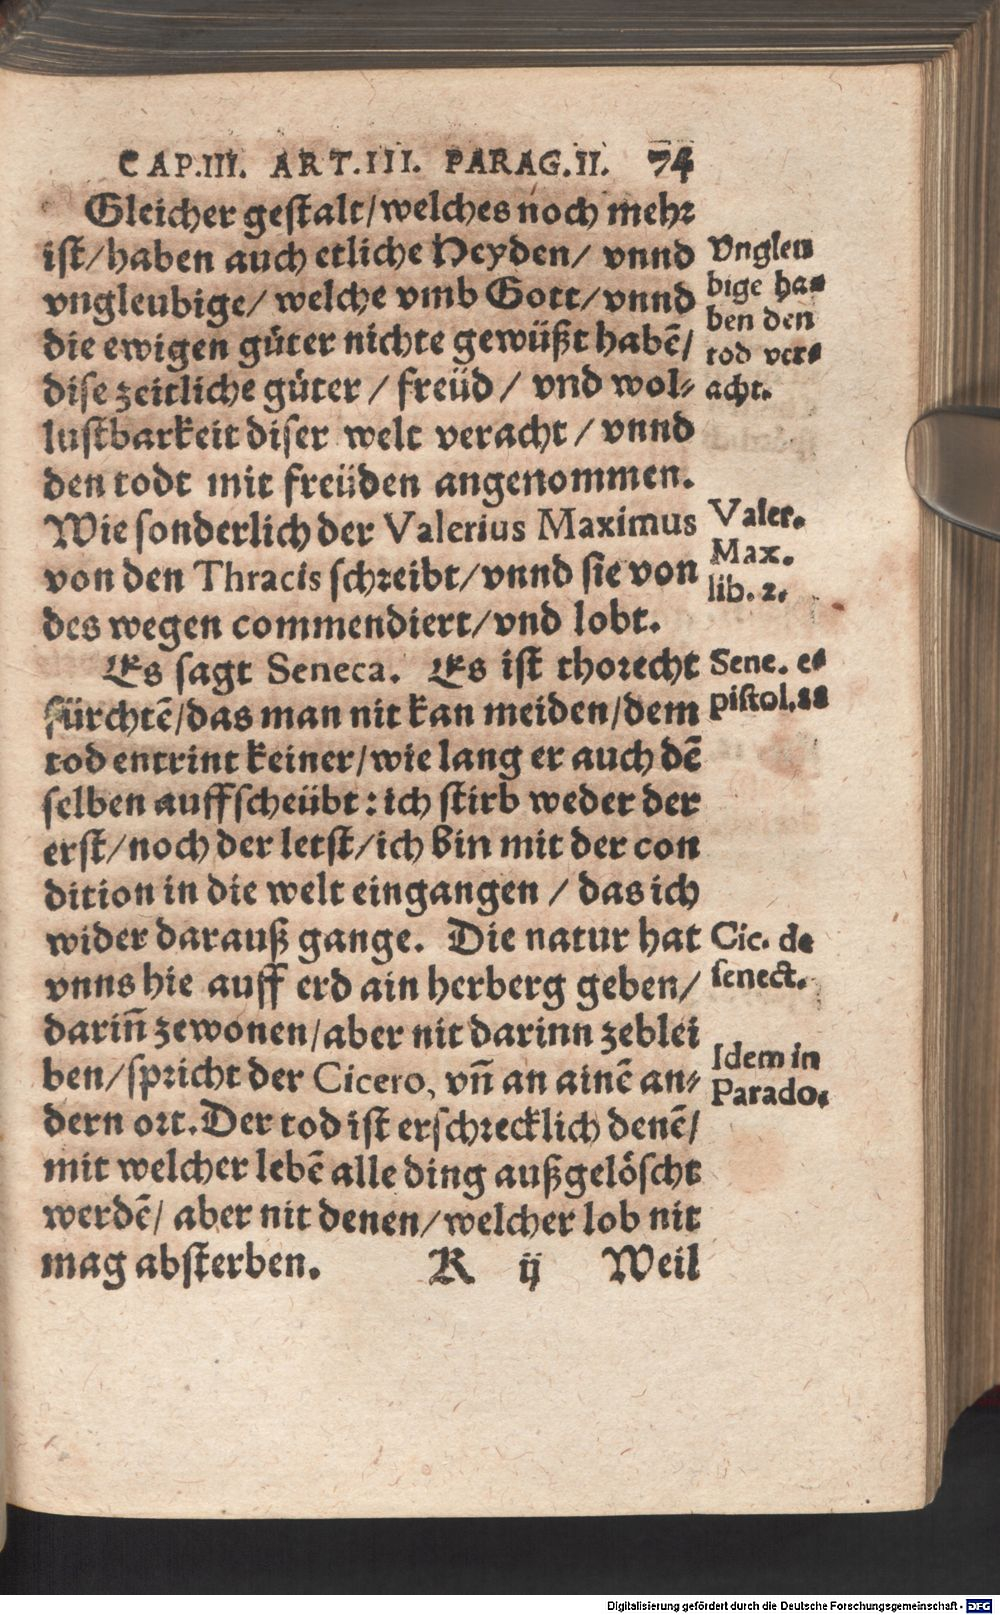 CAP.III. ART.III. PARAG.II. 74
Gleicher gestalt/welches noch mehr
ist/haben auch etliche Heyden/ vnnd
vngleubige/ welche vmb Gott/vnnd
die ewigen güter nichte gewüßt habē/
dise zeitliche güter / freüd / vnd wol-
lustbarkeit diser welt veracht / vnnd
den todt mit freüden angenommen.
Wie sonderlich der Valerius Maximus
von den Thracis schreibt/vnnd sie von
des wegen commendiert/vnd lobt.
Es sagt Seneca. Es ist thorecht
fürchtē/das man nit kan meiden/dem
tod entrint keiner/wie lang er auch dē
selben auffscheübt: ich stirb weder der
erst/noch der letst/ich bin mit der con
dition in die welt eingangen / das ich
wider darauß gange. Die natur hat
vnns hie auff erd ain herberg geben/
dariñ zewonen/aber nit darinn zeblei
ben/spricht der Cicero, vñ an ainē an-
dern ort. Der tod ist erschrecklich denē/
mit welcher lebē alle ding außgelöscht
werdē/ aber nit denen/welcher lob nit
mag absterben.
K ij Weil
Vngleu
bige ha-
ben den
tod ver-
acht.
Valer.
Max.
lib. 2.
Sene. e-
pistol.88
Cic. de
senect.
Idem in
Parado.
Digitalisierung gefördert durch die Deutsche Forschungsgemeinschaft - DFG